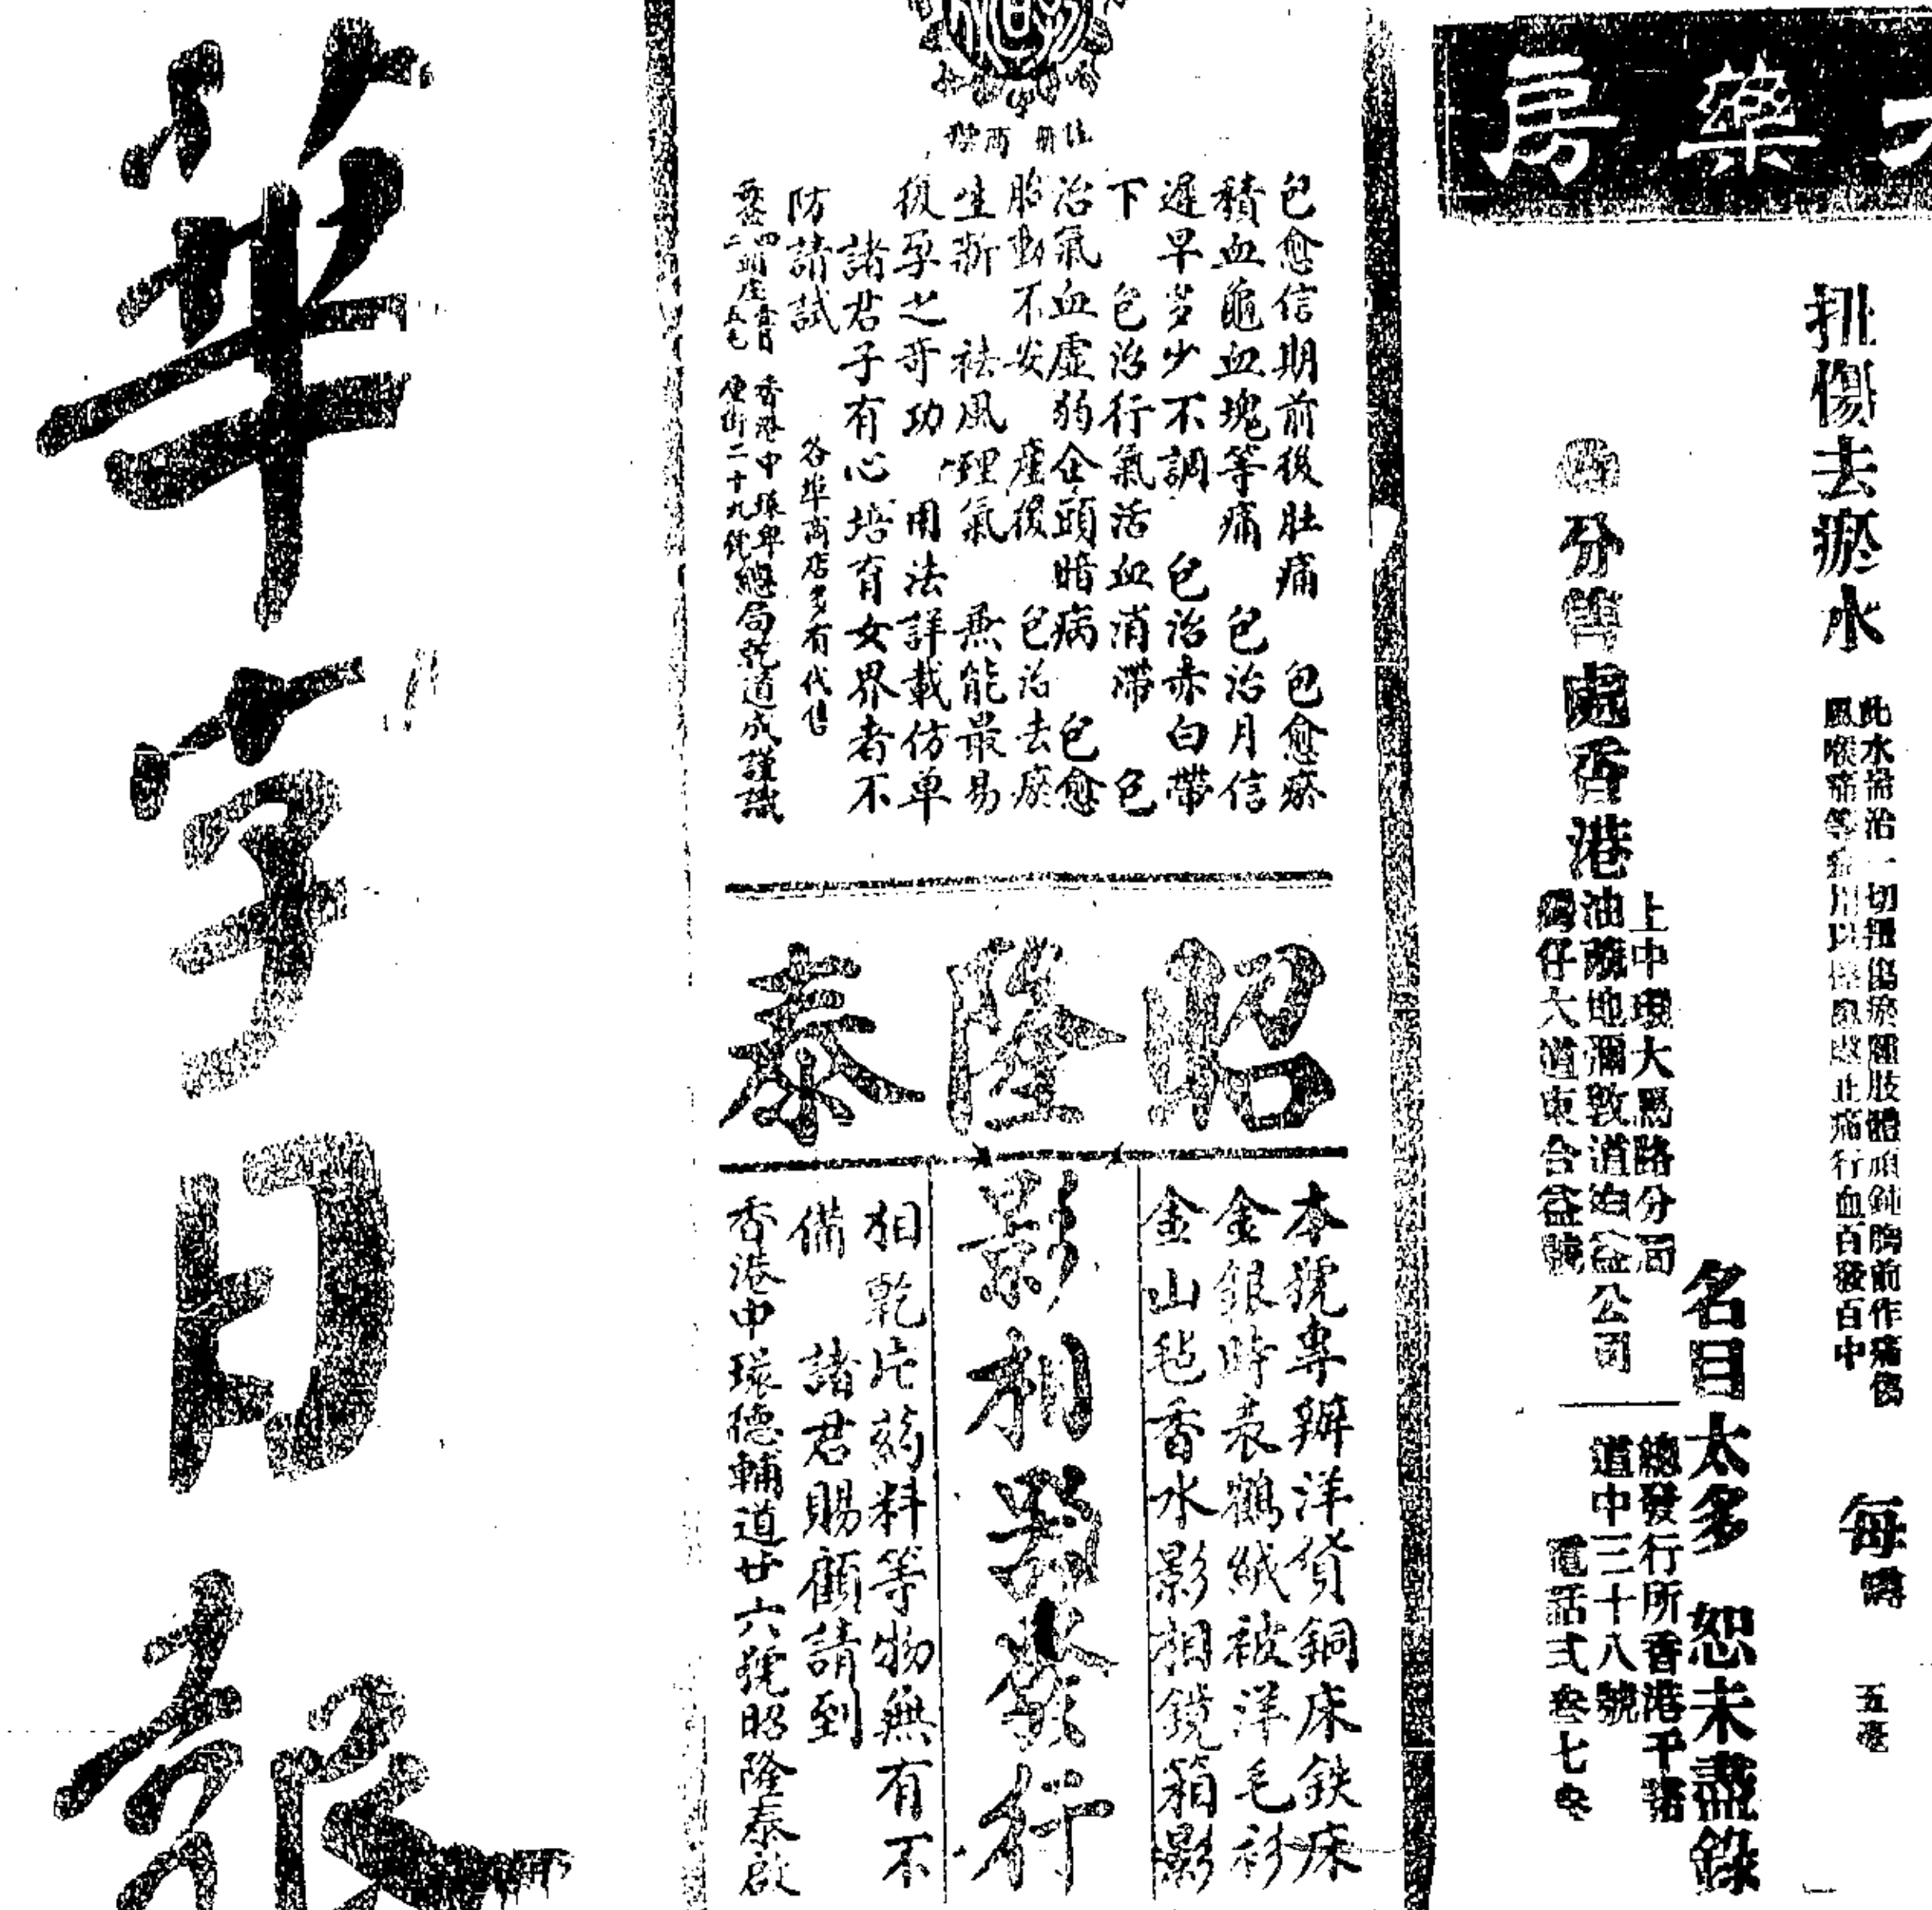 藥房
扭傷去瘀水
此水耑治一切扭傷瘀腫肢體頑鈍胸前作痛傷
風喉痛等症用以搽患處止痛行血百發百中
每樽
五毫
名目太多 恕未盡錄
分售處香港
上中環大馬路分局
油蔴地彌敦道均益公司
灣仔大道東合益號
總發行所香港干諾
道中三十八號
電話式叁七叁
包愈信期前後肚痛 包愈瘀
積血龜血塊等痛 包治月信
遲早多少不調 包治赤白帶
下 包治行氣活血消滯 包
治氣血虛弱企頭暗病 包愈
胎動不安 產後 包治去瘀
生新 祛風理氣 兼能最易
後孕之奇功 用法詳載仿单
諸君子有心培育女界者不
防請試 各埠商店多有代售
香港中環卑
便街二十九號總局乾道成謹識
昭隆泰
本號專辦洋貨銅床鉄床
金銀時表鶴絨被洋毛衫
金山毡香水影相鏡箱影
影相器發行
相乾片葯料等物無有不
備 諸君賜顧請到
香港中環德輔道廿六號昭隆泰啟
華字日報